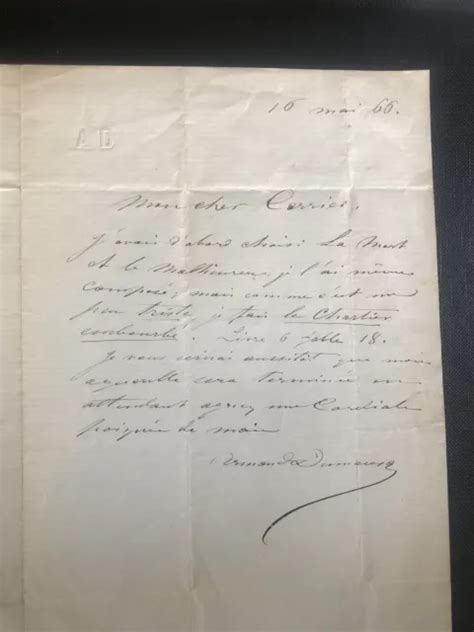 AD
16 mai 66.
Mon cher Cerrier,
J'avais d'abord choisi La Mort
et le Malheureux, je l'ai même
composé, mais comme c'est un
peu triste, je fais le Chartier
embourbé. Livre 6 fable 18.
Je vous écrirai aussitôt que mon
aquarelle sera terminée en
attendant agréez une Cordiale
poignée de main
Armand Dumaresq